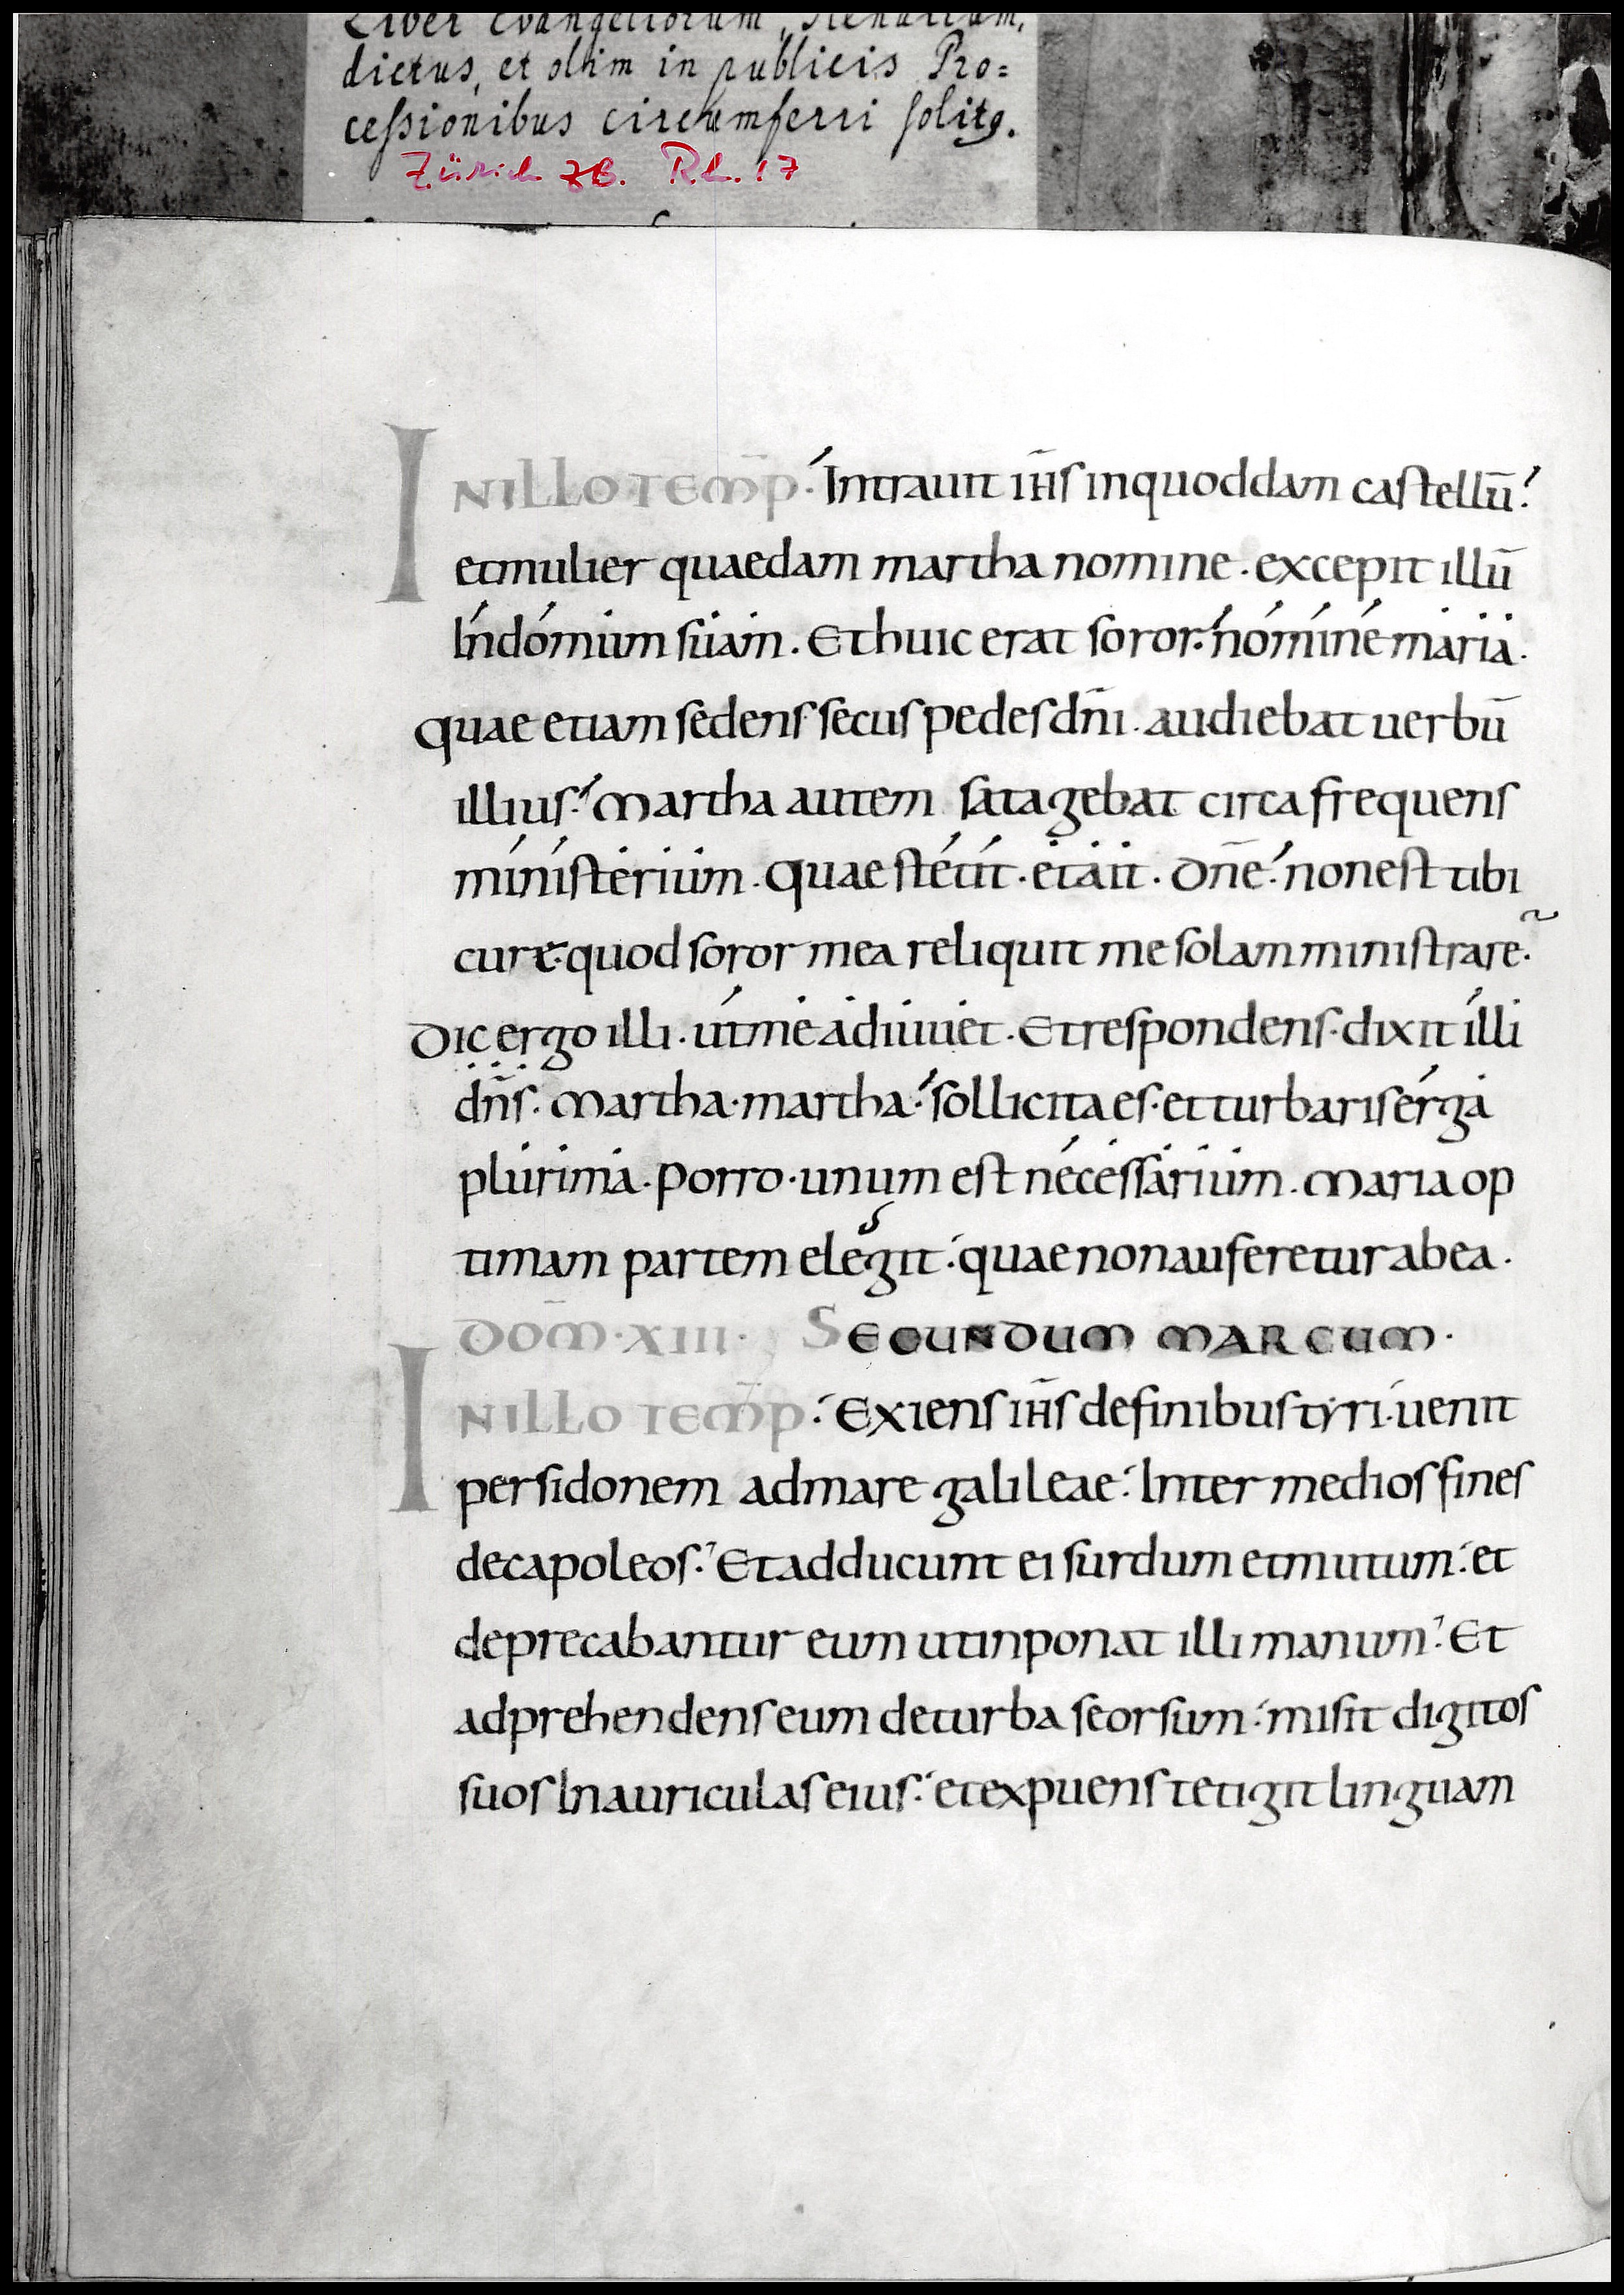 Liber Evangeliorum, Plenarium,
dictus, et olim in publicis Pro=
ceſsionibus circumferri ſolitꝰ.
Zürich ZB. Rh. 17
IN ILLO TEMP̄. Intrauit iħs in quoddam caſtellū
et mulier quaedam martha nomine. excepit illū
In domum ſuam. Et huic erat ſoror. nomine maria.
quae etiam ſedenſ ſecuſ pedeſ dn̄i. audiebat uerbū
illiuſ. Martha autem ſatagebat circa frequenſ
miniſterium. Quae ſtetit. et ait. Dn̄e. non eſt tibi
curę. quod ſoror mea reliquit me ſolam miniſtrare.
Dic ergo illi. ut me adiuuet. Et reſpondenſ. dixit illi
dn̄ſ. Martha. martha. ſollicita es. et turbariſ erga
plurima. Porro. unum eſt neceſſarium. Maria op
timam partem elegit. quae non auferetur ab ea.
DOM̄. XIII. SECUNDUM MARCUM.
IN ILLO TEMP̄. Exienſ iħs de finibuſ tyri. uenit
per ſidonem ad mare galileae. Inter medioſ fineſ
decapoleoſ. Et adducunt ei ſurdum et mutum. et
deprecabantur eum ut inponat illi manum. Et
adprehendenſ eum de turba ſeorſum. miſit digitoſ
ſuoſ In auriculaſ eiuſ. et expuenſ tetigit linguam